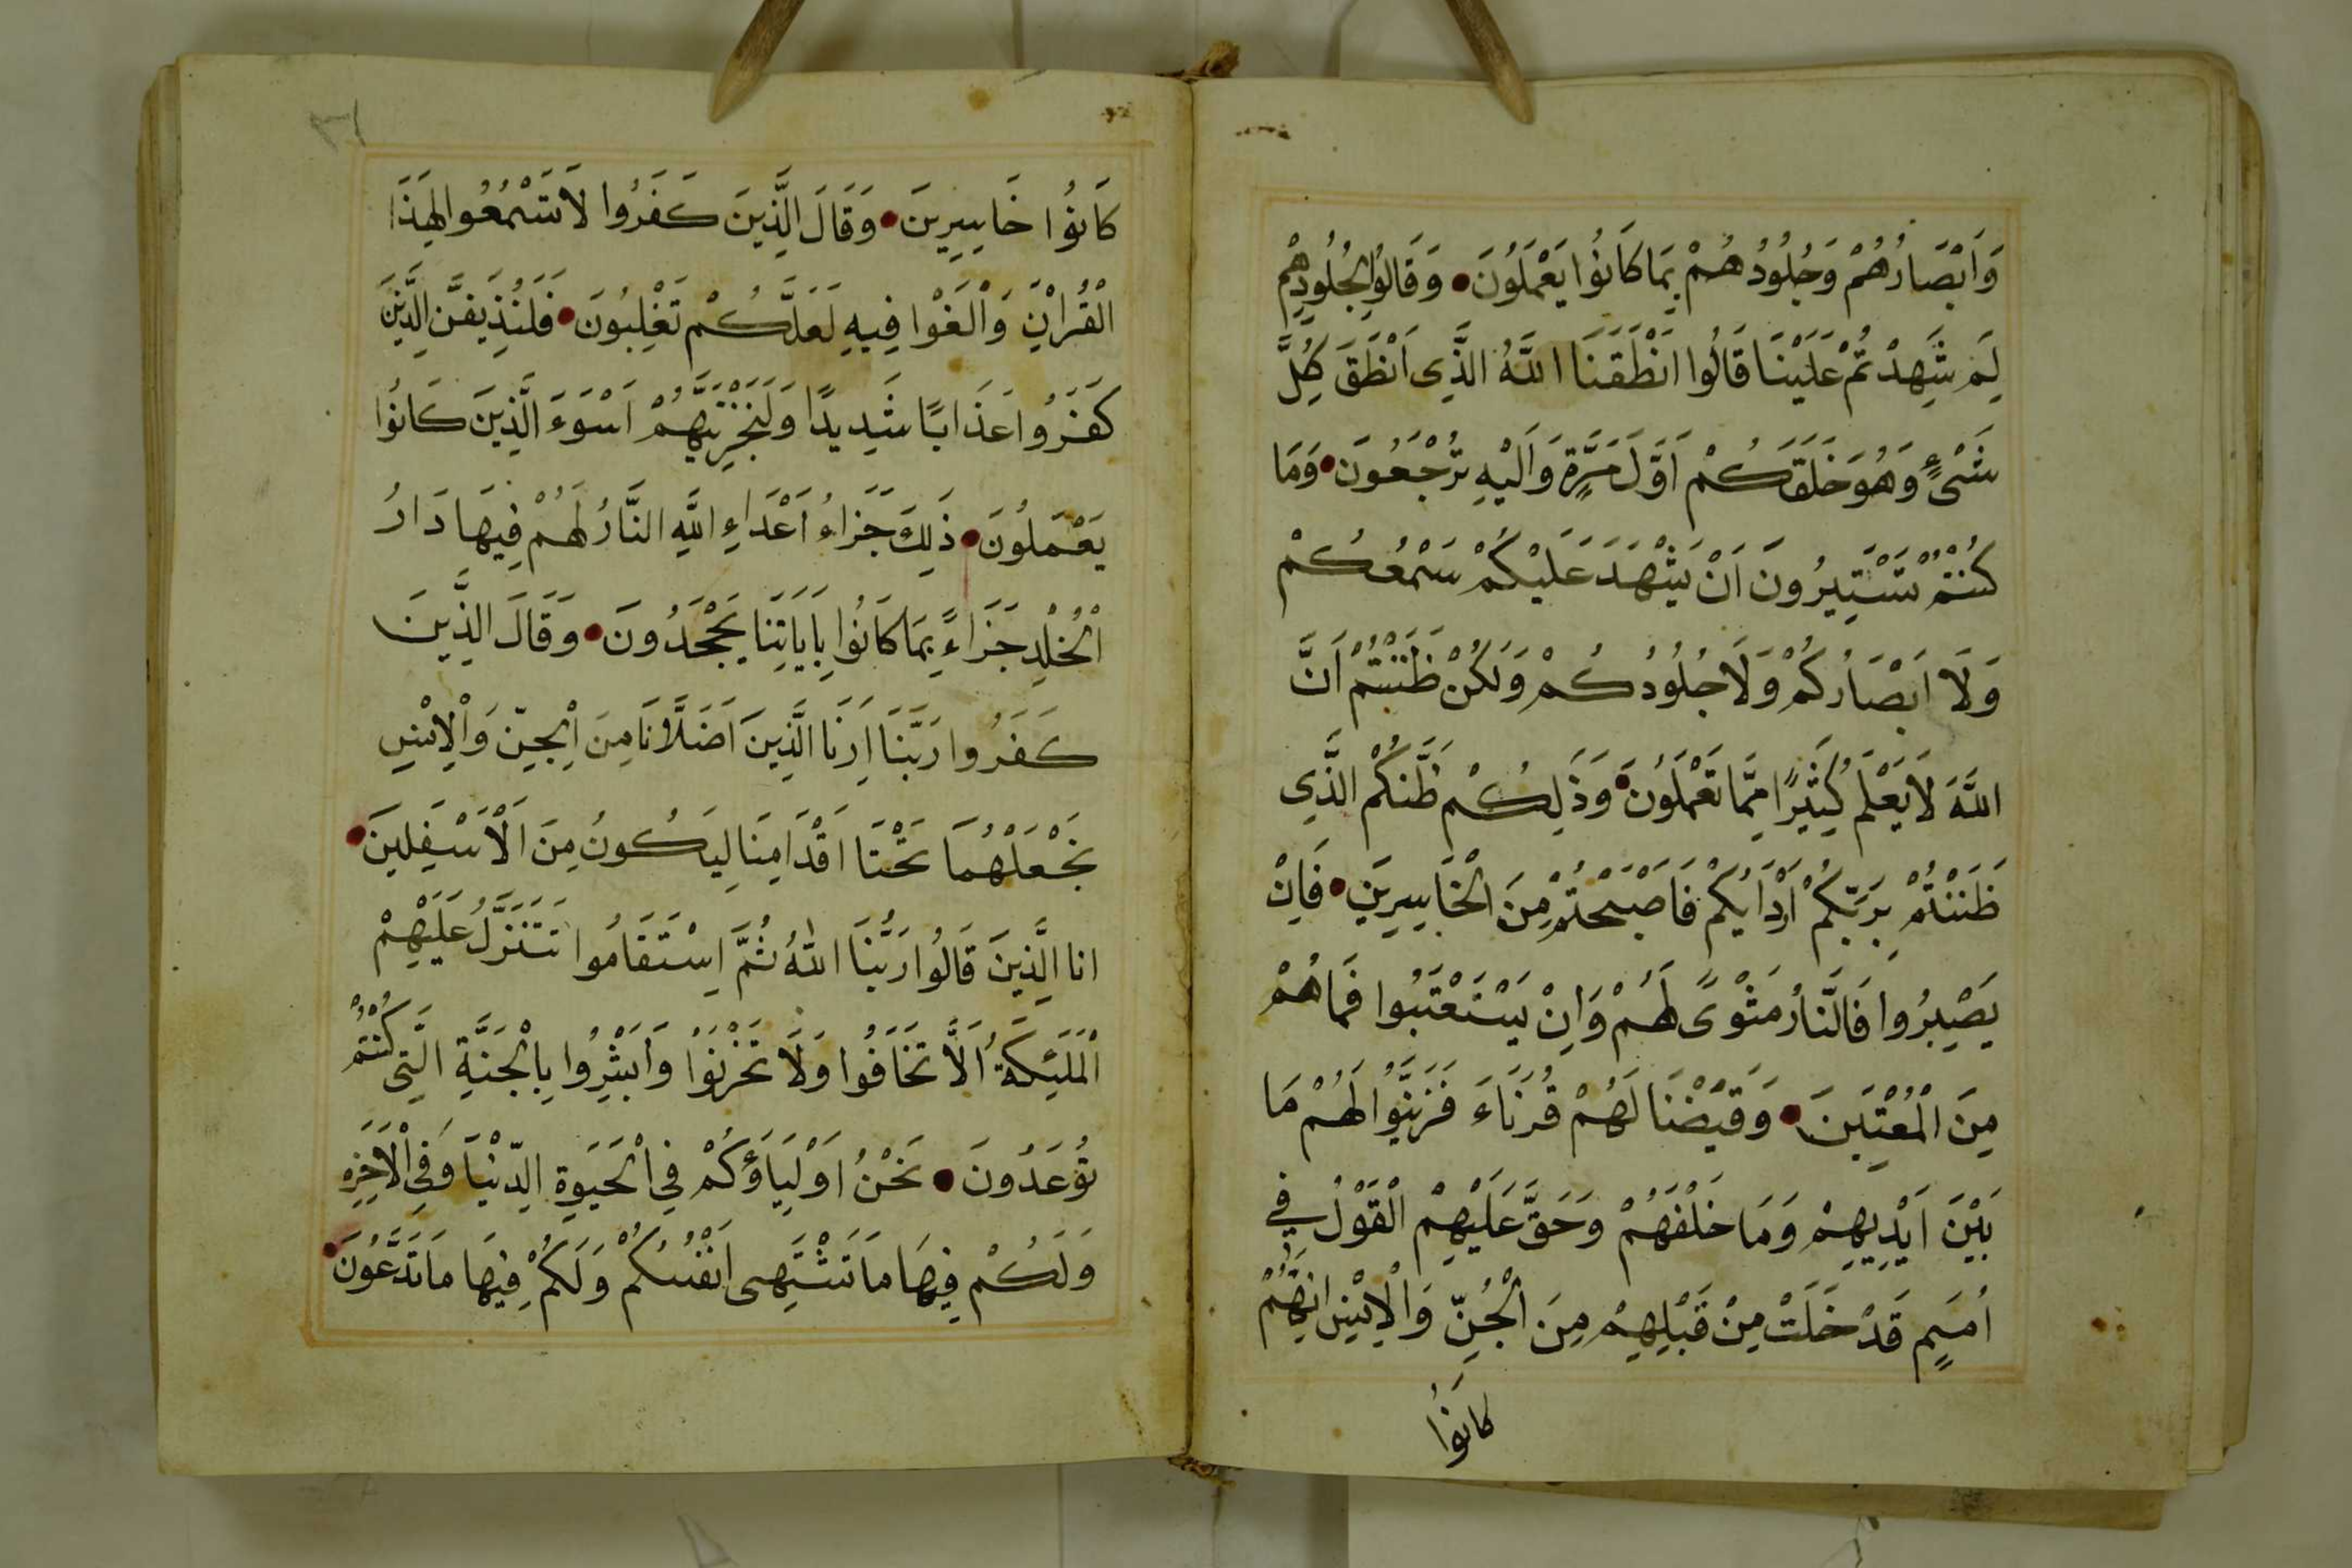 وَاَبْصَارُهُمْ وَجُلُودُهُمْ بِمَا كَانُوا يَعْمَلُونَ وَقَالُوا لِجُلُودِهِمْ
لِمَ شَهِدْتُمْ عَلَيْنَا قَالُوا انْطَقَنَا اللَّهُ الَّذِى اَنْطَقَ كُلَّ
شَىْءٍ وَهُوَ خَلَقَكُمْ اَوَّلَ مَرَّةٍ وَاِلَيْهِ تُرْجَعُونَ وَمَا
كُنْتُمْ تَسْتَتِيرُونَ اَنْ يَشْهَدَ عَلَيْكُمْ سَمْعُكُمْ
وَلَا اَبْصَارُكُمْ وَلَا جُلُودُكُمْ وَلَكِنْ ظَنَنْتُمْ اَنَّ
اللَّهَ لَا يَعْلَمُ كَثِيرًا مِمَّا تَعْمَلُونَ وَذَلِكُمْ ظَنُّكُمُ الَّذِى
ظَنَنْتُمْ بِرَبِّكُمْ اَرْدَايكُمْ فَاَصْبَحْتُمْ مِنَ الْخَاسِرِينَ فَاِنْ
يَصْبِرُوا فَالنَّارُ مَثْوًى لَهُمْ وَاِنْ يَسْتَعْتِبُوا فَمَا هُمْ
مِنَ الْمُعْتَبِينَ وَقَيَّضْنَا لَهُمْ قُرَنَاءَ فَزَيَّنُوا لَهُمْ مَا
بَيْنَ اَيْدِيهِمْ وَمَا خَلْفَهُمْ وَحَقَّ عَلَيْهِمُ الْقَوْلُ فِى
اُمَمٍ قَدْ خَلَتْ مِنْ قَبْلِهِمْ مِنَ الْجِنِّ وَالْاِنْسِ اِنَّهُمْ
كانُوا
٣١
كَانُوا خَاسِرِينَ وَقَالَ الَّذِينَ كَفَرُوا لَا تَسْمَعُوا لِهَذَا
الْقُرْاٰنِ وَالْغَوْا فِيهِ لَعَلَّكُمْ تَغْلِبُونَ فَلَنُذِيقَنَّ الَّذِينَ
كَفَرُوا عَذَابًا شَدِيدًا وَلَنَجْزِيَنَّهُمْ اَسْوَءَ الَّذِينَ كَانُوا
يَعْمَلُونَ ذَلِكَ جَزَاءُ اَعْدَاءِ اللَّهِ النَّارُ لَهُمْ فِيهَا دَارُ
الْخُلْدِ جَزَاءً بِمَا كَانُوا بِاَيَاتِنَا يَجْحَدُونَ وَقَالَ الَّذِينَ
كَفَرُوا رَبَّنَا اَرِنَا الَّذِينَ اَضَلَّانَا مِنَ الْجِنِّ وَالْاِنْسِ
نَجْعَلْهُمَا تَحْتَ اَقْدَامِنَا لِيَكُونُ مِنَ الْاَسْفَلِينَ
انا الَّذِينَ قَالُوا رَبُّنَا اللَّهُ ثُمَّ اِسْتَقَامُوا تَتَنَزَّلُ عَلَيْهِمْ
الْمَلَئِكَةُ اَلَّا تَخَافُوا وَلَا تَحْزَنُوا وَاَبْشِرُوا بِالْجَنَّةِ الَّتِى كُنْتُمْ
تُوعَدُونَ نَحْنُ اَوْلِيَاؤُكُمْ فِى الْحَيَوةِ الدُّنْيَا وَفِى الْاَخِرَه
وَلَكُمْ فِيهَا مَا تَشْتَهِى اَنْفُسُكُمْ وَلَكُمْ فِيهَا مَا تَدَّعُونَ